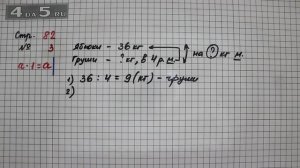 4DA5.RU
Стр. 82
№ 3
Яблоки – 36 кг
Груши – ? кг, в 4 р. м.
на ? кг м.
a · 1 = a
1) 36 : 4 = 9 (кг) – груши
2)